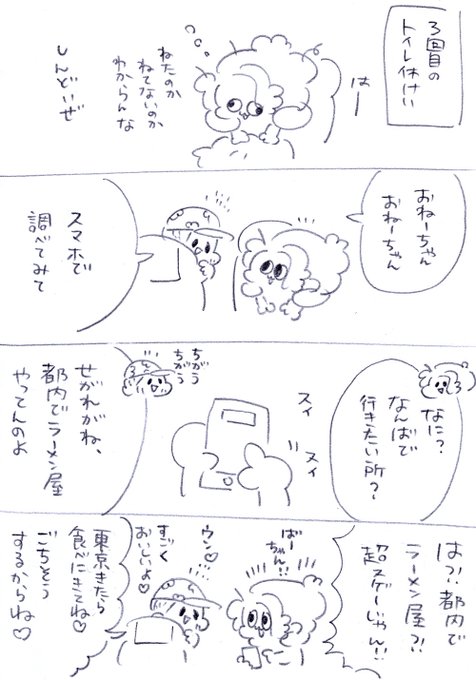 3回目の
トイレ休けい
はー
ねたのか
ねてないのか
わからんな
しんどいぜ
おねーちゃん
おねーちゃん
スマホで
調べてみて
なに?
なんばで
行きたい所?
スイ
スイ
ちがう
ちがう
せがれがね、
都内でラーメン屋
やってんのよ
はっ!都内で
ラーメン屋?!
超スゲーじゃん!!
ばー
ちゃん!!
ウン♡
すごく
おいしいよ♡
東京きたら
食べにきてね♡
ごちそう
するからね♡